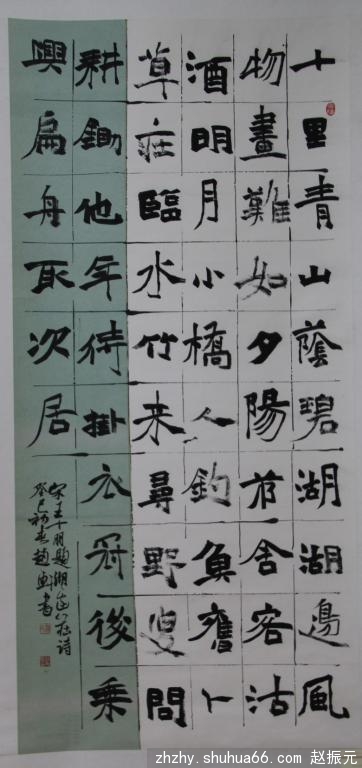 十里青山蔭碧湖湖邊風
物畫難如夕陽茆舍客沽
酒明月小橋人釣魚舊卜
草莊臨水竹来尋野叟問
耕鋤他年待掛衣冠後乘
興扁舟取次居
宋王十朋題湖邊莊詩
癸巳初春趙書
zhzhy.shuhua66.com 赵振元